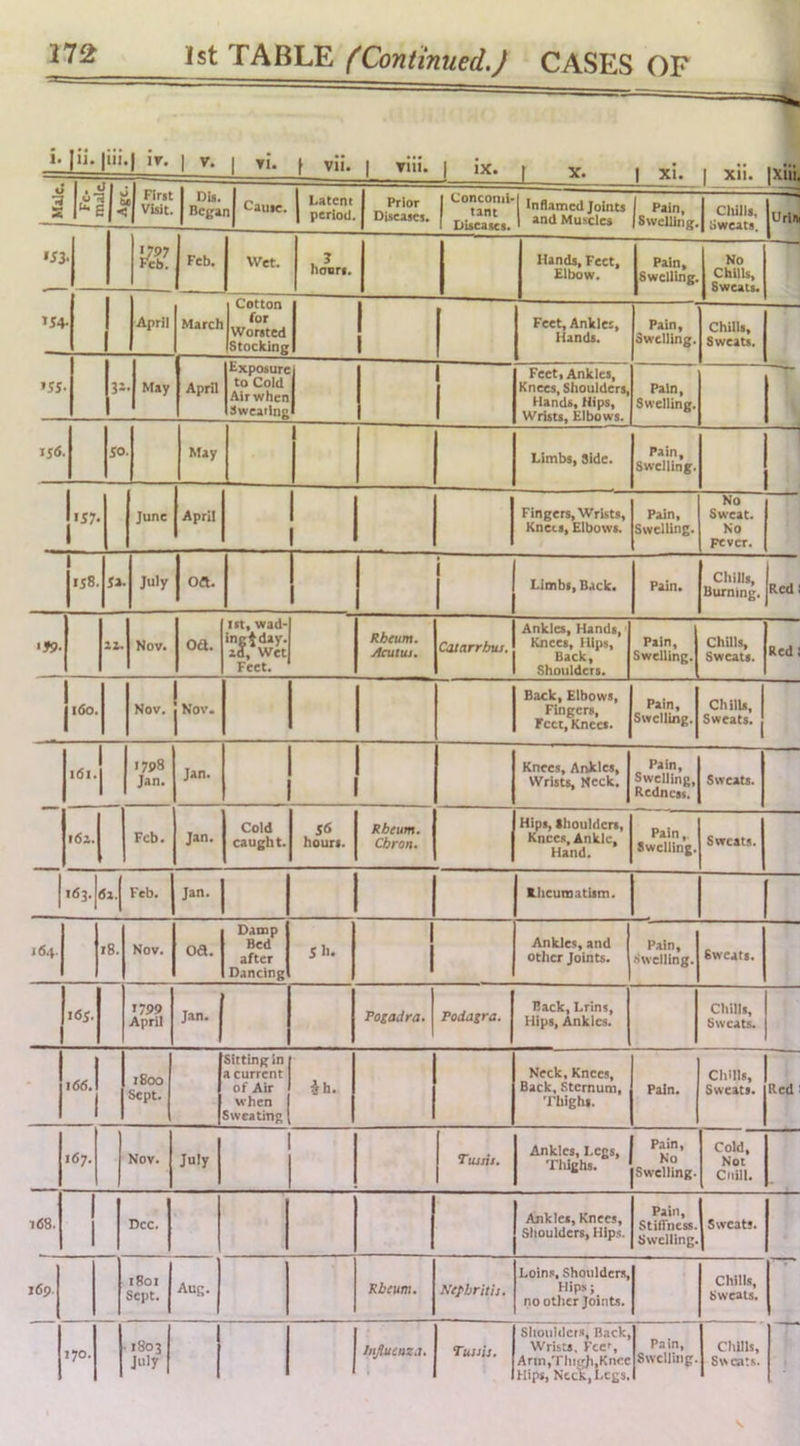 172 1st TABLE (Continued.) CASES OF
i. ii. iii. iv. v. vi. vii. viii. ix. x. xi. xii. xiii.
Male. Fe-male. Age. First Visit. Dis. Began Cause. Latent period. Prior Diseases. Concomi-tant Diseases. Inflamed Joints and Muscles Pain, Swelling. Chills, Sweats. Urin
153. 1797 Feb. Feb. Wet. 3 hours. Hands, Feet, Elbow. Pain, Swelling. No Chills, Sweats.
154. April March Cotton for Worsted Stocking Feet, Ankles, Hands. Pain, Swelling. Chills, Sweats.
155. 32. May April Exposure to Cold Air when Sweating Feet, Ankles, Knees, Shoulders, Hands, Hips, Wrists, Elbows. Pain, Swelling.
156. 50. May Limbs, Side. Pain, Swelling.
157. June April Fingers, Wrists, Knees, Elbows. Pain, Swelling. No Sweat. No Fever.
158. 52. July Oct. Limbs, Back. Pain. Chills, Burning. Red
159. 22. Nov. Oct. 1st, wad-ing ½ day. 2d, Wet Feet. Rheum. Acutus. Catarrhus. Ankles, Hands, Knees, Hips, Back, Shoulders. Pain, Swelling. Chills, Sweats. Red
160. Nov. Nov. Back, Elbows, Fingers, Feet, Knees. Pain, Swelling. Chills, Sweats.
161. 1798 Jan. Jan. Knees, Ankles, Wrists, Neck. Pain, Swelling, Redness. Sweats.
162. Feb. Jan. Cold caught. 56 hours. Rheum. Chron. Hips, shoulders, Knees, Ankle, Hand. Pain, Swelling. Sweats.
163. 62. Feb. Jan. Rheumatism.
164. 18. Nov. Oct. Damp Bed after Dancing 5 h. Ankles, and other Joints. Pain, Swelling. Sweats.
165. 1799 April Jan. Pogadra. Podagra. Back, Lrins, Hips, Ankles. Chills, Sweats.
166. 1800 Sept. Sitting in a current of Air when Sweating ½ h. Neck, Knees, Back, Sternum, Thighs. Pain. Chills, Sweats. Red
167. Nov. July Tussis. Ankles, Legs, Thighs. Pain, No Swelling. Cold, Not Chill.
168. Dec. Ankles, Knees, Shoulders, Hips. Pain, Stiffness. Swelling. Sweats.
169. 1801 Sept. Aug. Rheum. Nephritis. Loins, Shoulders, Hips; no other Joints. Chills, Sweats.
170. 1803 July Influenza. Tussis. Shoulders, Back, Wrists, Feet, Arm, Thigh, Knee Hips, Neck, Legs. Pain, Swelling. Chills, Sweats.